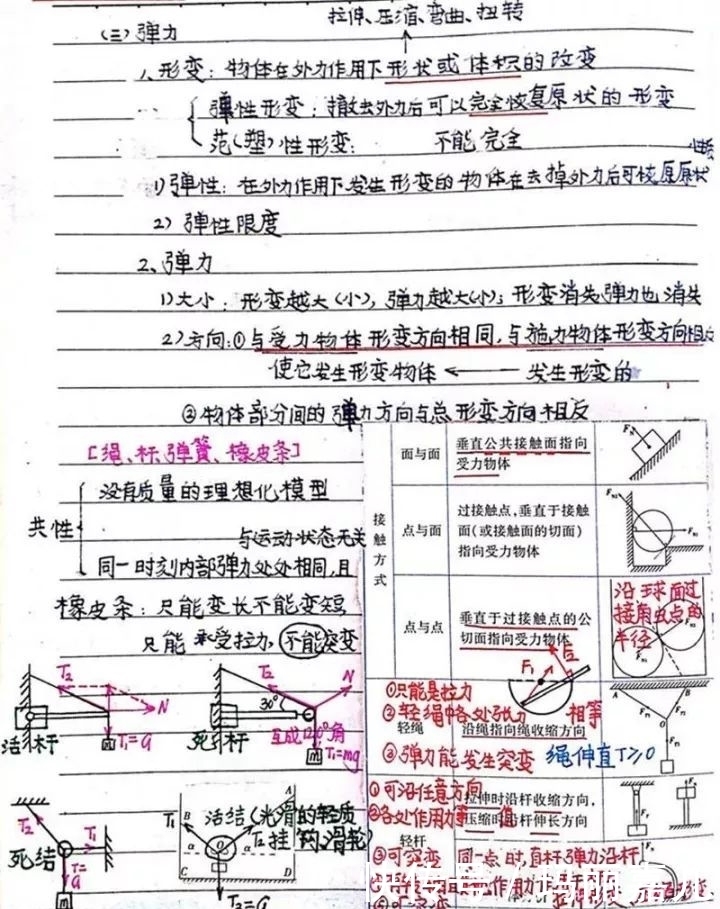 拉伸、压缩、弯曲、扭转
(三) 弹力
1、形变：物体在外力作用下形状或体积的改变
弹性形变：撤去外力后可以完全恢复原状的形变
范(塑)性形变：不能完全
1) 弹性：在外力作用下发生形变的物体在去掉外力后可恢原原状
2) 弹性限度
2、弹力
1) 大小：形变越大(小)，弹力越大(小)；形变消失，弹力也消失
2) 方向：①与受力物体形变方向相同，与施力物体形变方向相反
使它发生形变物体 ← 发生形变的
②物体部分间的弹力方向与总形变方向相反
[绳、杆、弹簧、橡皮条]
共性
没有质量的理想化模型
与运动状态无关
同一时刻内部弹力处处相同，且
橡皮条：只能变长不能变短，
只能承受拉力，不能突变
T₂
N
T₁=G
m
活杆
T₂
N
30°
互成120°角
T₁=mg
m
死杆
T₂
T₁
T=G
m
死结
活结(光滑的轻质
挂钩、滑轮)
T₁
T₂
A
B
O
α
α
C
D
T₃=G
接触方式
面与面
垂直公共接触面指向
受力物体
点与面
过接触点，垂直于接触
面(或接触面的切面)
指向受力物体
点与点
垂直于过接触点的公
切面指向受力物体
沿球面过
接触点的
半径
F₁
F₂
①只能是拉力
②轻绳中各处张力相等
轻绳
沿绳指向绳收缩方向
③弹力能发生突变
绳伸直T≥0
A
B
O
①可沿任意方向
拉伸时沿杆收缩方向，
②各处作用力
压缩时沿杆伸长方向
轻杆
③可突变
同一点时，直杆弹力沿杆